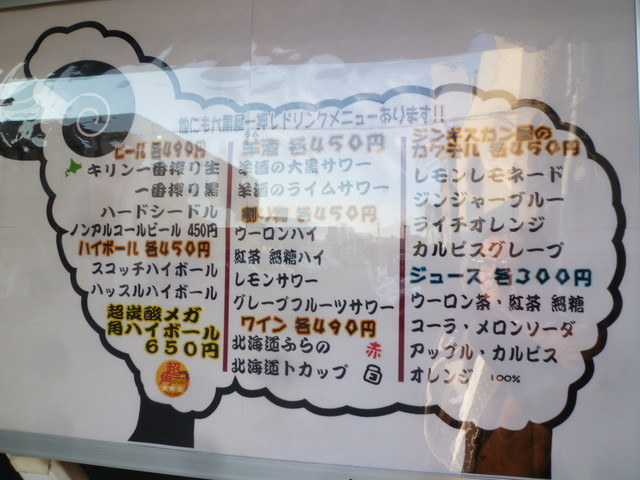 他にも六黒屋一押しドリンクメニューあります!!
ビール 各490円
キリン一番搾り生
一番搾り黒
ハードシードル
ノンアルコールビール 450円
ハイボール 各450円
スコッチハイボール
ハッスルハイボール
超炭酸メガ
角ハイボール
650円
超角
羊酒 各450円
羊酒の大黒サワー
羊酒のライムサワー
割り物 各450円
ウーロンハイ
紅茶 無糖ハイ
レモンサワー
グレープフルーツサワー
ワイン 各490円
北海道ふらの 赤
北海道トカップ 白
ジンギスカン屋の
カクテル 各450円
レモンレモネード
ジンジャーブルー
ライチオレンジ
カルピスグレープ
ジュース 各300円
ウーロン茶・紅茶 無糖
コーラ・メロンソーダ
アップル・カルピス
オレンジ 100%